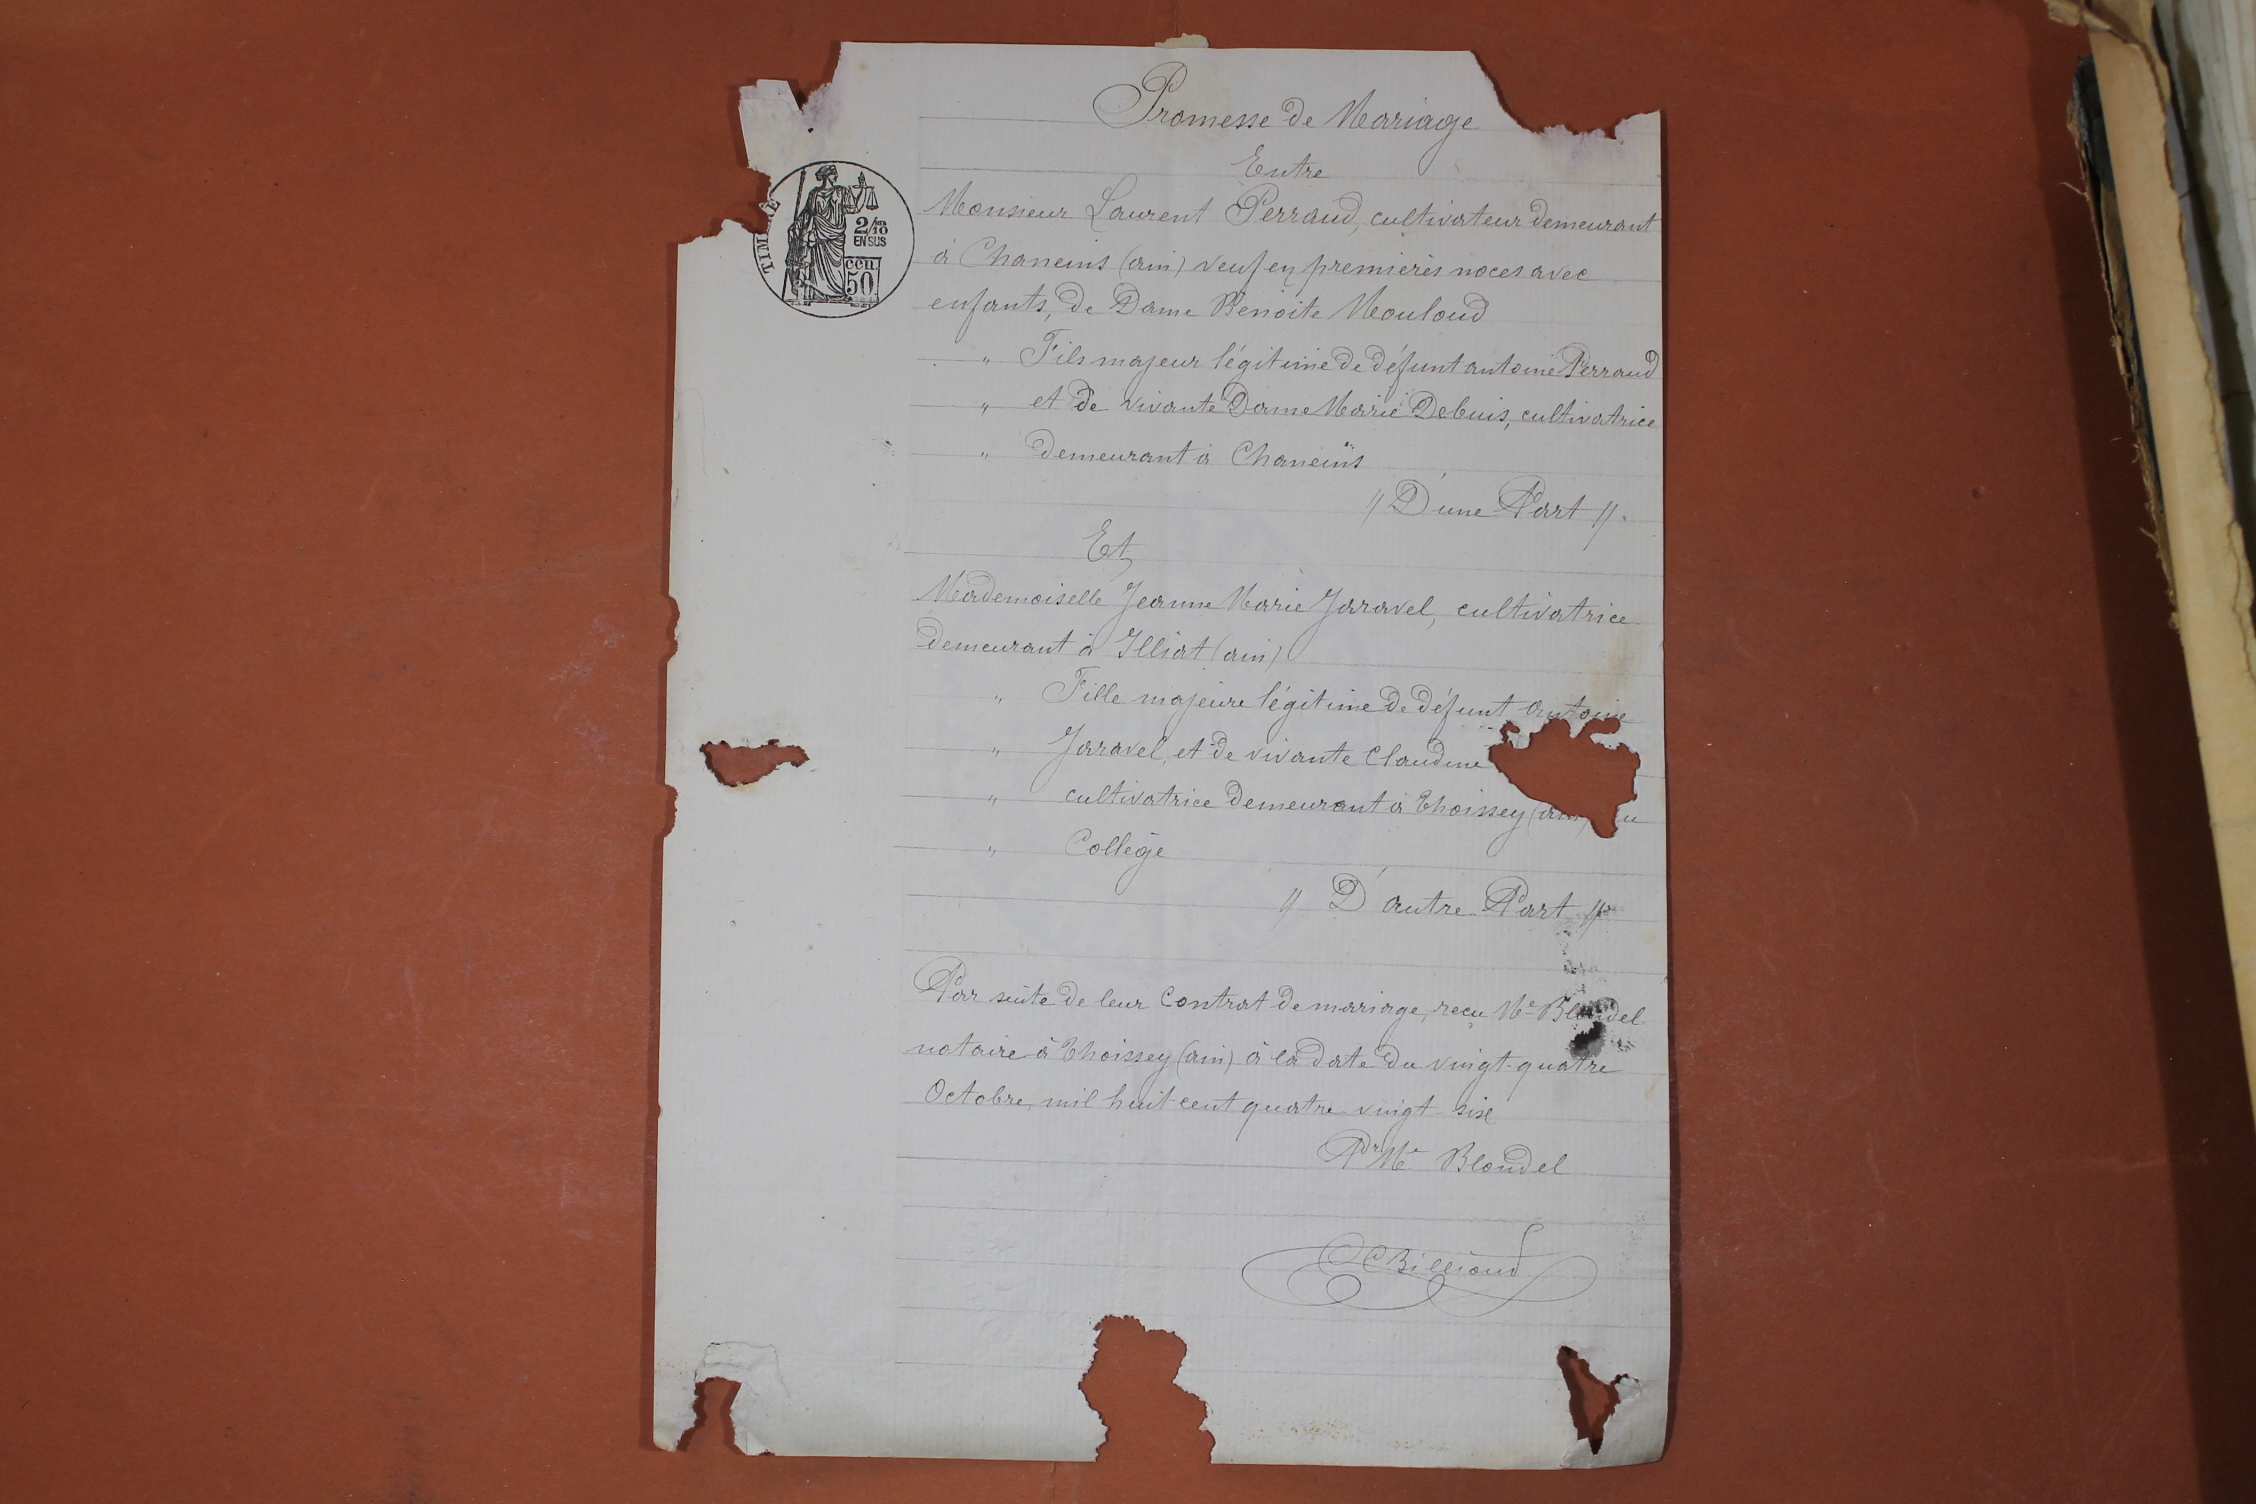 Promesse de Mariage
Entre
TIMBRE
2/10
EN SUS
cen.
50
Monsieur Laurent Perraud, cultivateur demeurant
à Chaneins (ain) veuf en premières noces avec
enfants, de Dame Benoite Mouloud
" Fils majeur légitime de défunt antoine Perraud
" et de vivante Dame Marie Debuis, cultivatrice
" demeurant à Chaneins
// D'une Part //.
Et
Mademoiselle Jeanne Marie Jaravel, cultivatrice
demeurant à Illiat (ain)
" Fille majeure légitime de défunt antoine
" Jaravel, et de vivante Claudine
" cultivatrice demeurant à Thoissey (ain)
" Collège
// D'autre Part //
Par suite de leur Contrat de mariage, reçu Me Blondel
notaire à Thoissey (ain) à la date du vingt-quatre
Octobre, mil huit cent quatre vingt six
Pr Me Blondel
CBillioud